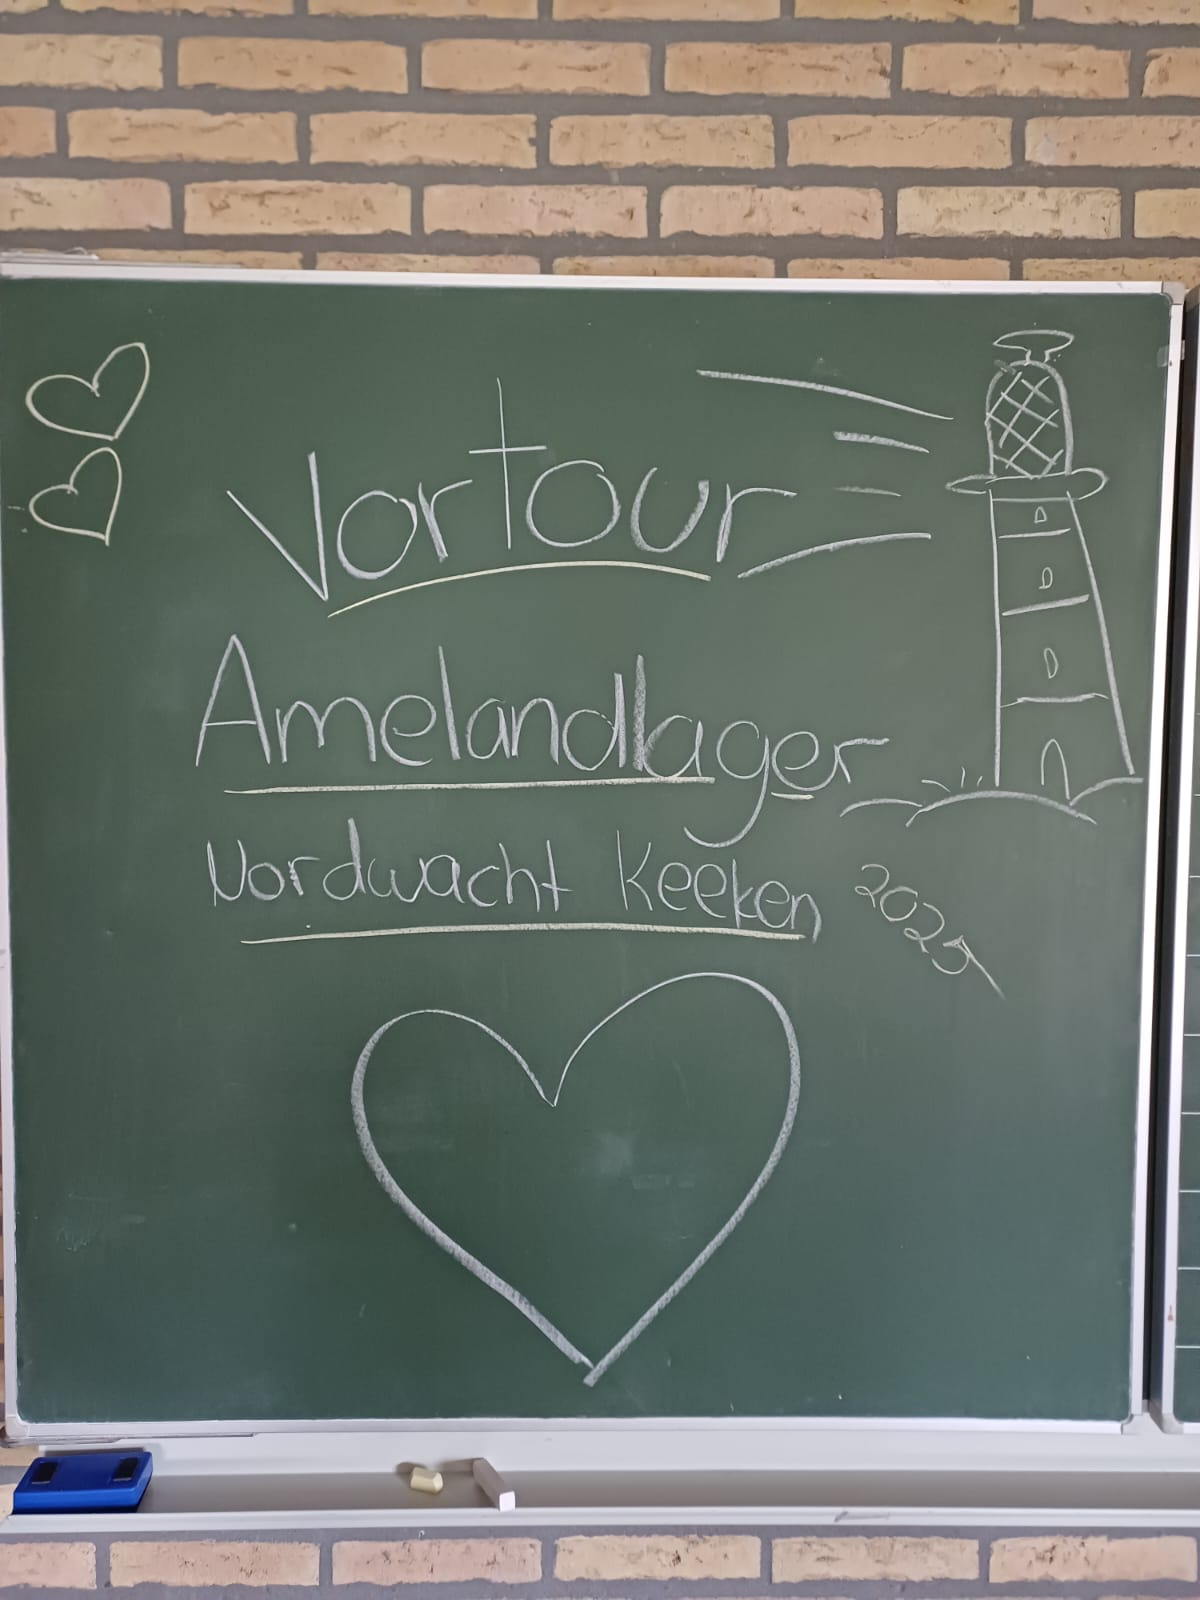 Vortour
Amelandlager
Nordwacht Keeken
2025